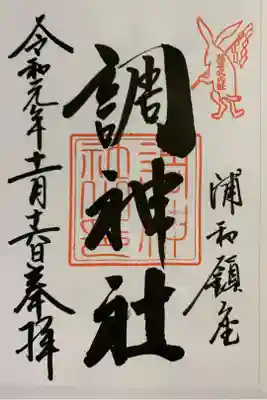 浦和鎮座
調神社
令和元年十一月十六日奉拝